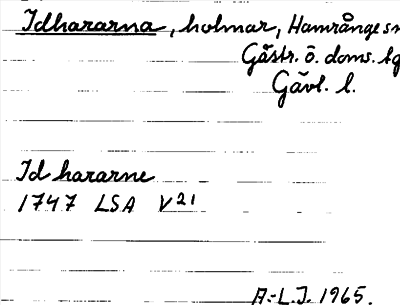 Idhararna, holmar, Hamrånge sn
Gästr. ö. doms. tg
Gävl. l.
Id hararne
1747 LSA V21
A.-L.J. 1965.